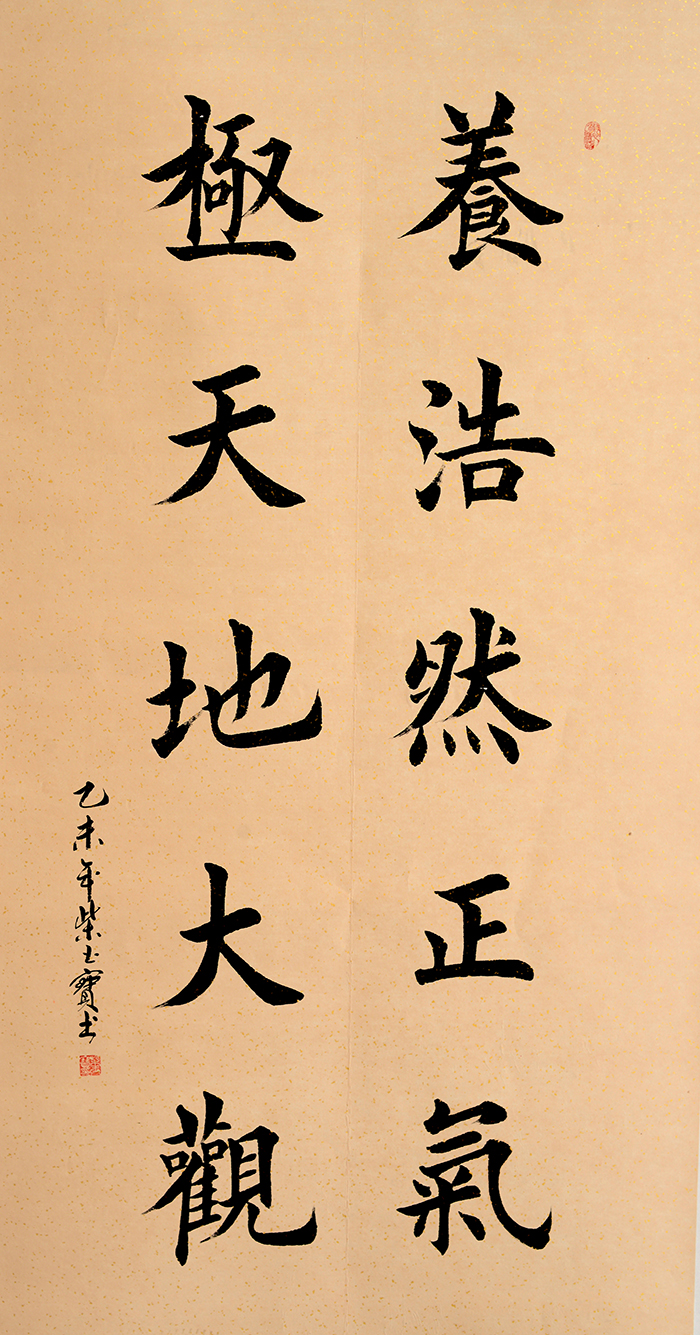 養浩然正氣
極天地大觀
乙未年柴玉寶书